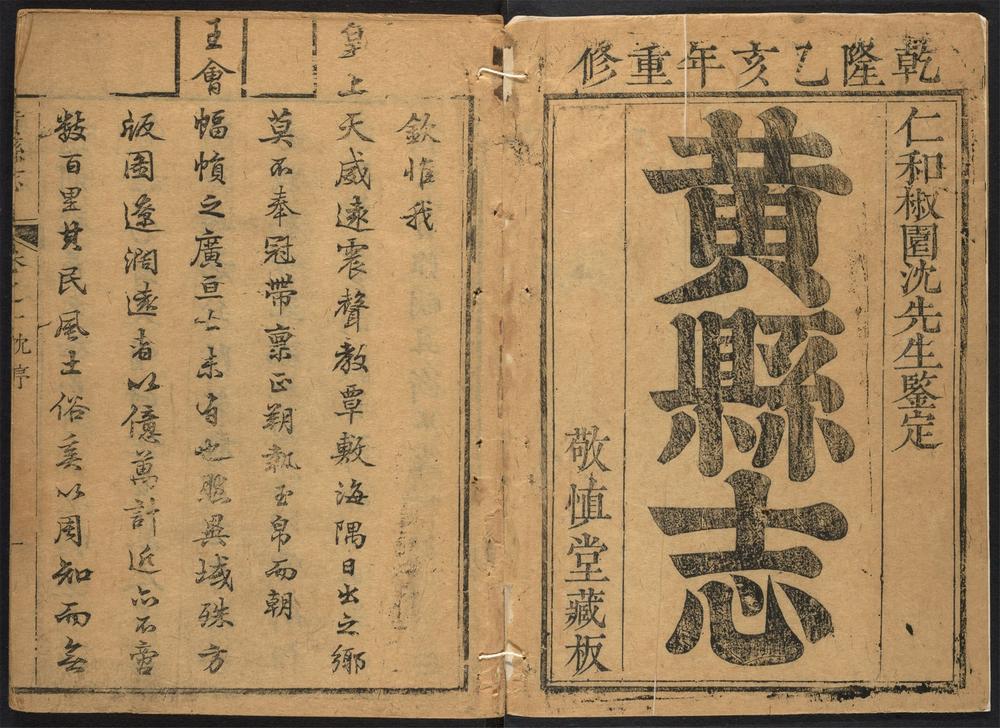 乾隆乙亥年重修
仁和椒園沈先生鑒定
黃縣志
敬慎堂藏板
欽惟我
皇上天威遠震聲教覃敷海隅日出之鄉
莫不奉冠帶稟正朔執玉帛而朝
王會幅幀之廣亘古未有也然異域殊方
版圖遼濶遠者以億萬計近亦不啻
數百里其民風土俗奚以周知而無